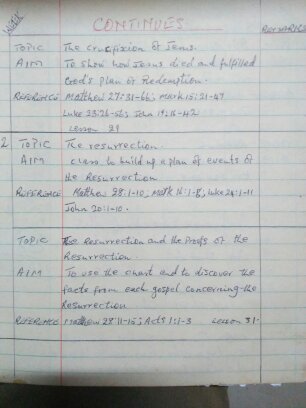 WEEK CONTINUES REMARKS
TOPIC The crucifixion of Jesus.
AIM To show how Jesus died and fulfilled
God's plan of Redemption.
REFERENCE Matthew 27:31-66; Mark 15:21-47
Luke 23:26-56; John 19:16-42
Lesson 29
2 TOPIC The resurrection.
AIM class to build up a plan of events of
the Resurrection
REFERENCE Matthew 28:1-10; Mark 16:1-8; Luke 24:1-11
John 20:1-10.
TOPIC The Resurrection and the Proofs of the
Resurrection
AIM To use the chart and to discover the
facts from each gospel concerning the
Resurrection
REFERENCE Matthew 28:11-15; Acts 1:1-3 Lesson 31-